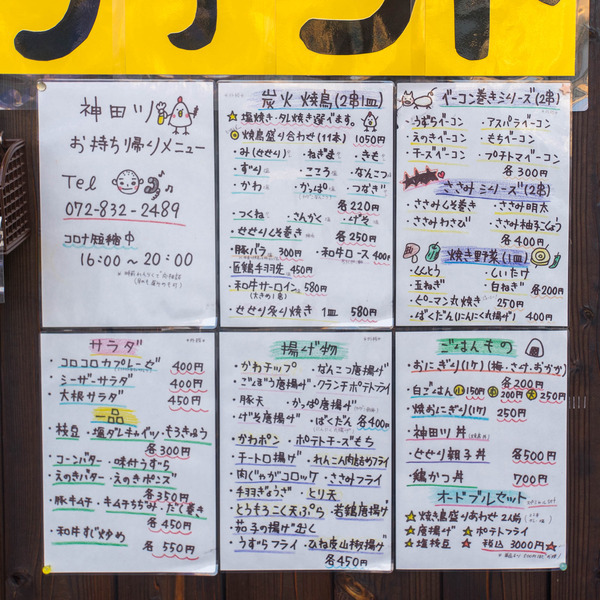 神田川
お持ち帰りメニュー
Tel
072-832-2489
コロナ短縮中
16:00〜20:00
炭火焼鳥(2串1皿)
塩焼き・タレ焼き選べます。
焼鳥盛り合わせ(11本) 1050円
・み(せせり) ・ねぎま ・きも
・ずり ・こころ ・なんこつ
・かわ ・かっぱ ・つなぎ
各220円
・つくね ・さんかく ・げそ
・せせりくそ巻き 各250円
・豚バラ 300円 ・和牛ロース 400円
・匠鶏手羽先 450円
・和牛サーロイン 580円
(大きめ1串)
・せせり炙り焼き 1皿 580円
ベーコン巻きシリーズ(2串)
・うずらベーコン アスパラベーコン
・えのきベーコン ・もちベーコン
・チーズベーコン ・プチトマベーコン
各300円
ささみシリーズ(2串)
・ささみくそ巻き ・ささみ明太
・ささみわさび ・ささみ柚子こしょう
各400円
焼き野菜(1皿)
・ししとう ・しいたけ
・玉ねぎ ・白ねぎ 各200円
・ピーマン丸焼き 250円
・ばくだん(にんにく丸揚げ) 400円
サラダ
・コロコロカプレーゼ 400円
・シーザーサラダ 400円
・大根サラダ 450円
一品
・枝豆 ・塩ダレキャベツ ・もろきゅう
各300円
・コーンバター ・味付うずら
・えのきバター ・えのきポンズ
各350円
・豚キムチ ・キムチちぢみ ・だし巻き
各450円
・和牛すじ炒め
各550円
揚げ物
・かわチップ ・なんこつ唐揚げ
・ごぼう唐揚げ ・クランチポテトフライ
・豚天 ・かっぱ唐揚げ
・げそ唐揚げ ・ばくだん 各400円
・かわポン ・ポテトチーズもち
・チートロ揚げ ・れんこん肉詰めフライ
・肉じゃがコロッケ ・ささみフライ
・手羽ぎょうざ ・とり天
・とうもろこし天ぷら ・若鶏唐揚げ
・茄子の揚げ出し
・うずらフライ ・ひね皮山椒揚げ
各450円
ごはんもの
・おにぎり(1ケ)(梅・さけ・おかか)
各200円
・白ごはん 小150円 中200円 大250円
・焼おにぎり(1ケ) 250円
・神田川丼
・せせり親子丼 各500円
・鶏かつ丼 700円
オードブルセット
焼き鳥盛りあわせ 2人前
唐揚げ ポテトフライ
塩枝豆 税込 3000円